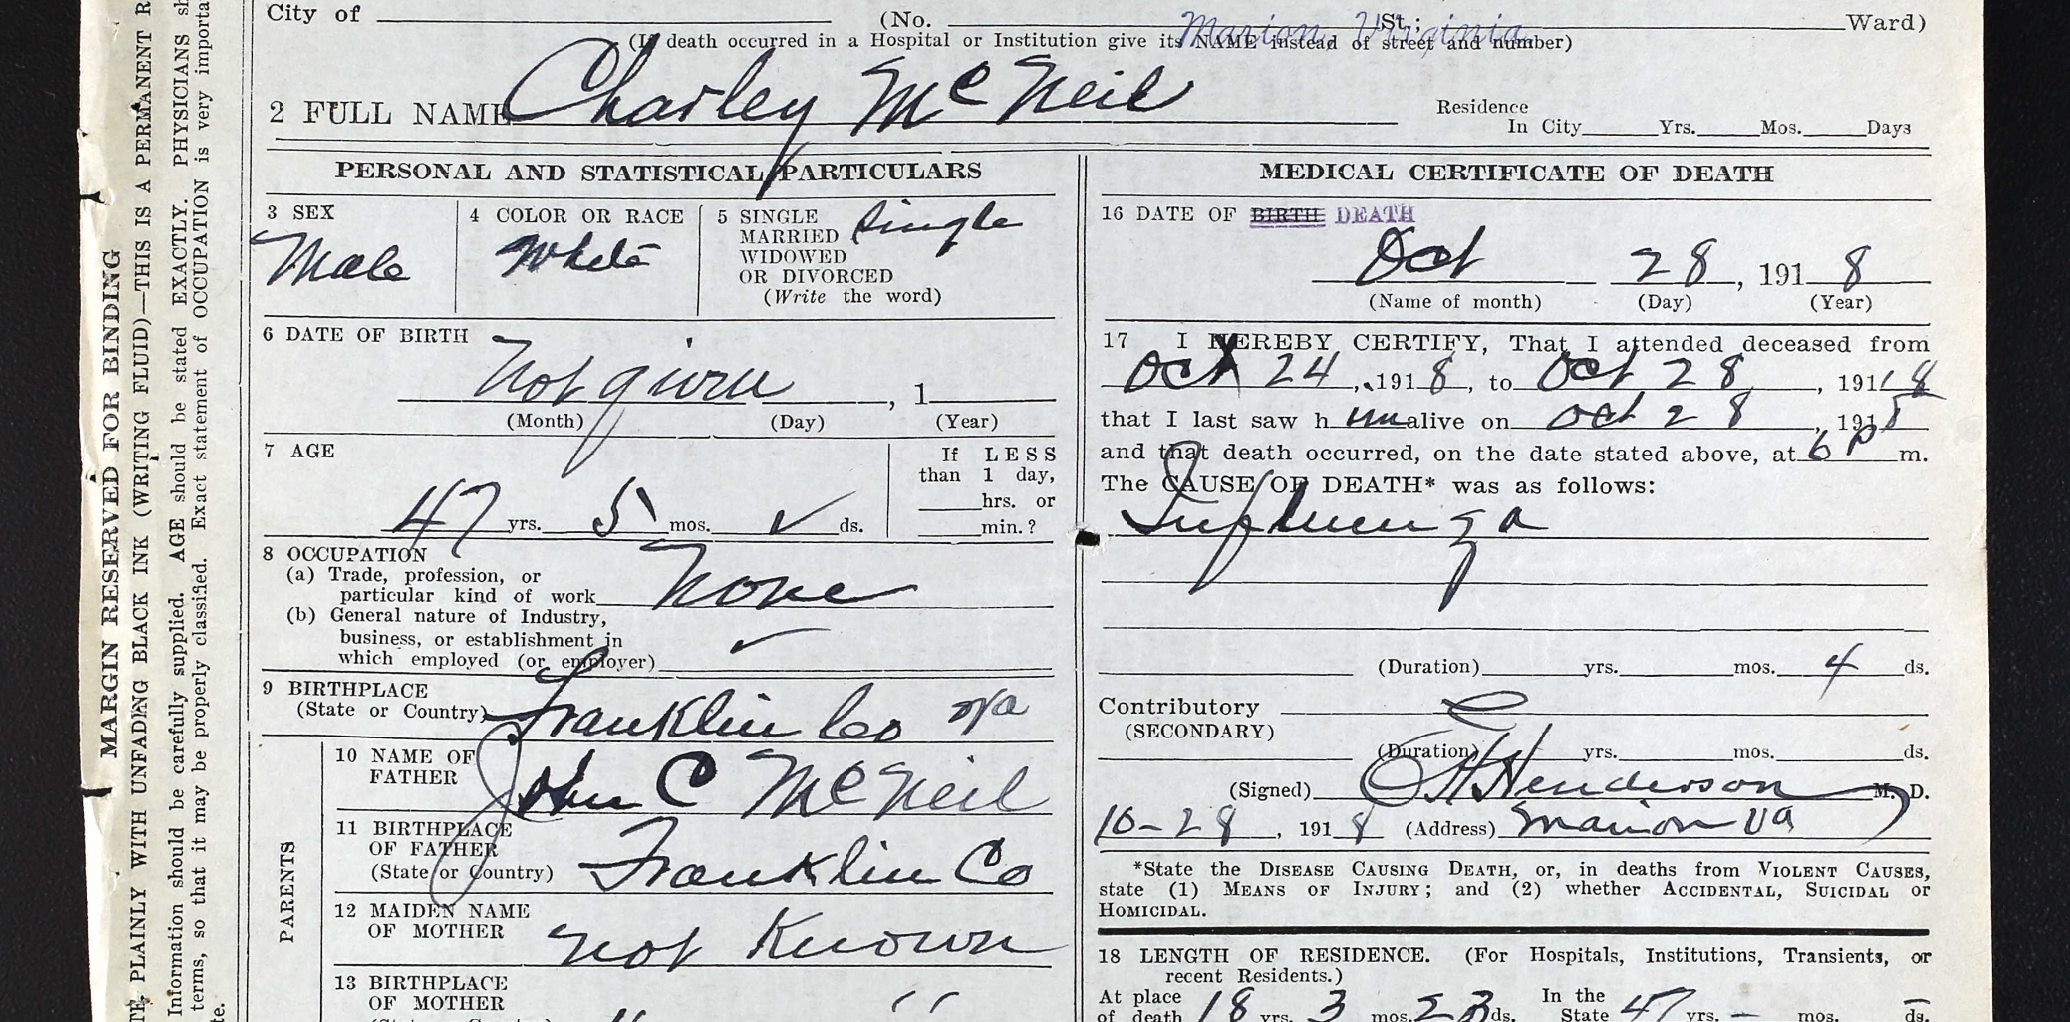 City of (No. St.; Ward)
Marion, Virginia
(If death occurred in a Hospital or Institution give its NAME instead of street and number)
2 FULL NAME Charley McNeil
Residence
In City Yrs. Mos. Days
PERSONAL AND STATISTICAL PARTICULARS
3 SEX
Male
4 COLOR OR RACE
White
5 SINGLE
MARRIED
WIDOWED
OR DIVORCED
(Write the word)
Single
6 DATE OF BIRTH
Not given , 1
(Month) (Day) (Year)
7 AGE
47 yrs. 5 mos. ✓ ds.
If LESS
than 1 day,
hrs. or
min.?
8 OCCUPATION
(a) Trade, profession, or
particular kind of work None
(b) General nature of Industry,
business, or establishment in
which employed (or employer) ✓
9 BIRTHPLACE
(State or Country) Franklin Co Va
PARENTS
10 NAME OF
FATHER
John C McNeil
11 BIRTHPLACE
OF FATHER
(State or Country) Franklin Co
12 MAIDEN NAME
OF MOTHER
not Known
13 BIRTHPLACE
OF MOTHER
" "
MEDICAL CERTIFICATE OF DEATH
16 DATE OF BIRTH DEATH
Oct 28, 1918
(Name of month) (Day) (Year)
17 I HEREBY CERTIFY, That I attended deceased from
Oct 24, 1918, to Oct 28, 19118
that I last saw him alive on Oct 28, 1918
and that death occurred, on the date stated above, at 6 P m.
The CAUSE OF DEATH* was as follows:
Influenza
(Duration) yrs. mos. 4 ds.
Contributory
(SECONDARY)
(Duration) yrs. mos. ds.
(Signed) Henderson M. D.
10-28, 1918 (Address) Marion Va
*State the DISEASE CAUSING DEATH, or, in deaths from VIOLENT CAUSES,
state (1) MEANS OF INJURY; and (2) whether ACCIDENTAL, SUICIDAL or
HOMICIDAL.
18 LENGTH OF RESIDENCE. (For Hospitals, Institutions, Transients, or
recent Residents.)
At place
of death 18 yrs. 3 mos. 23 ds.
In the
State 47 yrs. — mos. — ds.
MARGIN RESERVED FOR BINDING
PLAINLY WITH UNFADING BLACK INK (WRITING FLUID)—THIS IS A PERMANENT R
Information should be carefully supplied. AGE should be stated EXACTLY. PHYSICIANS sh
terms, so that it may be properly classified. Exact statement of OCCUPATION is very importa